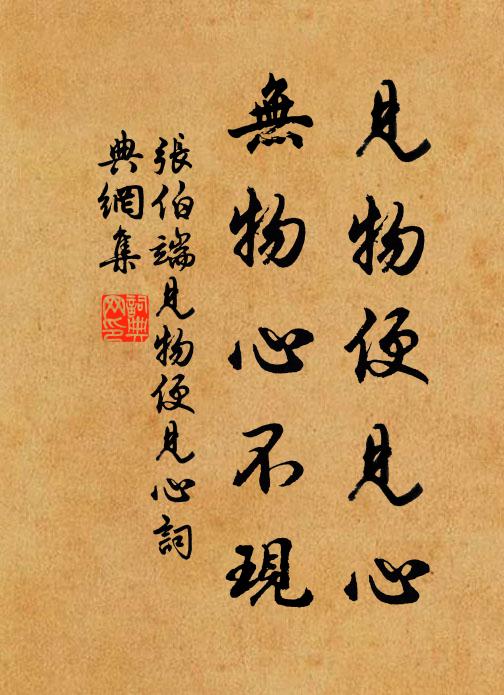 見物便見心
無物心不現
張伯端見物便見心詞
典網集
詞典
网印